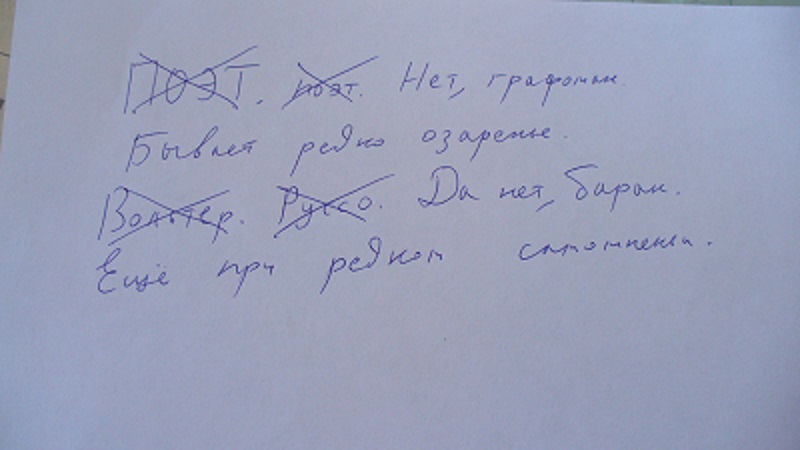 ПОЭТ. поэт. Нет, графоман.
Бывает редко озаренье.
Вольтер. Руссо. Да нет, баран.
Ещё при редком сомненьи.